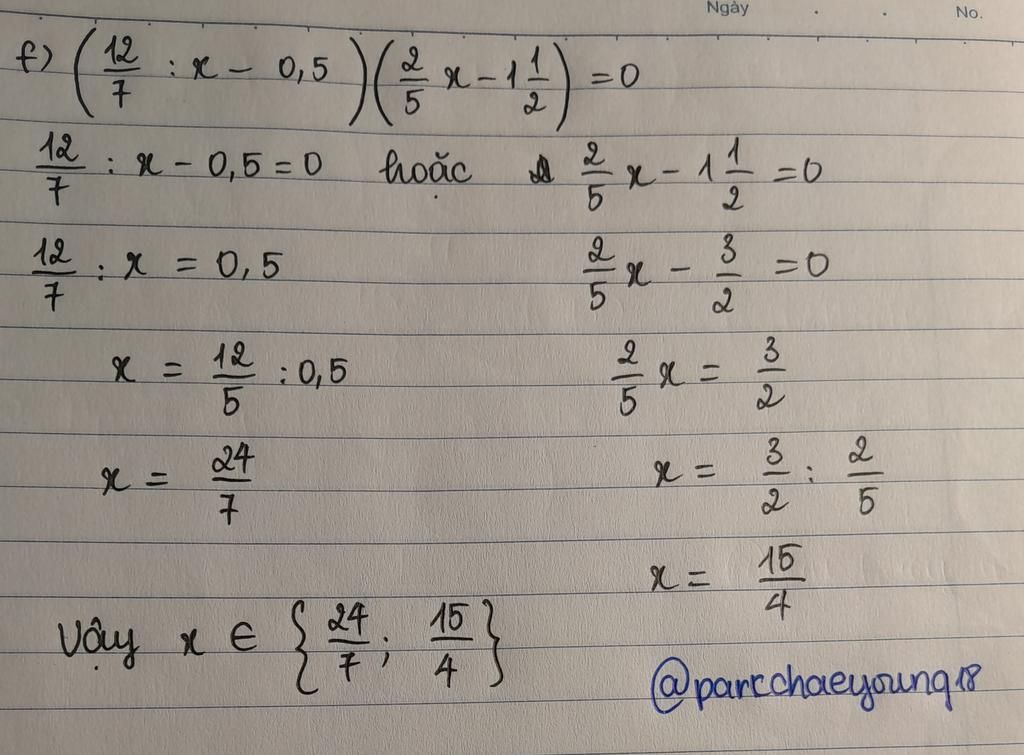 Ngày . . No.
f) (12/7 : x - 0,5)(2/5 x - 1 1/2) = 0
12/7 : x - 0,5 = 0 hoặc 2/5 x - 1 1/2 = 0
12/7 : x = 0,5 2/5 x - 3/2 = 0
x = 12/5 : 0,5 2/5 x = 3/2
x = 24/7 x = 3/2 : 2/5
x = 15/4
Vậy x ∈ {24/7; 15/4}
@parkchaeyoung18